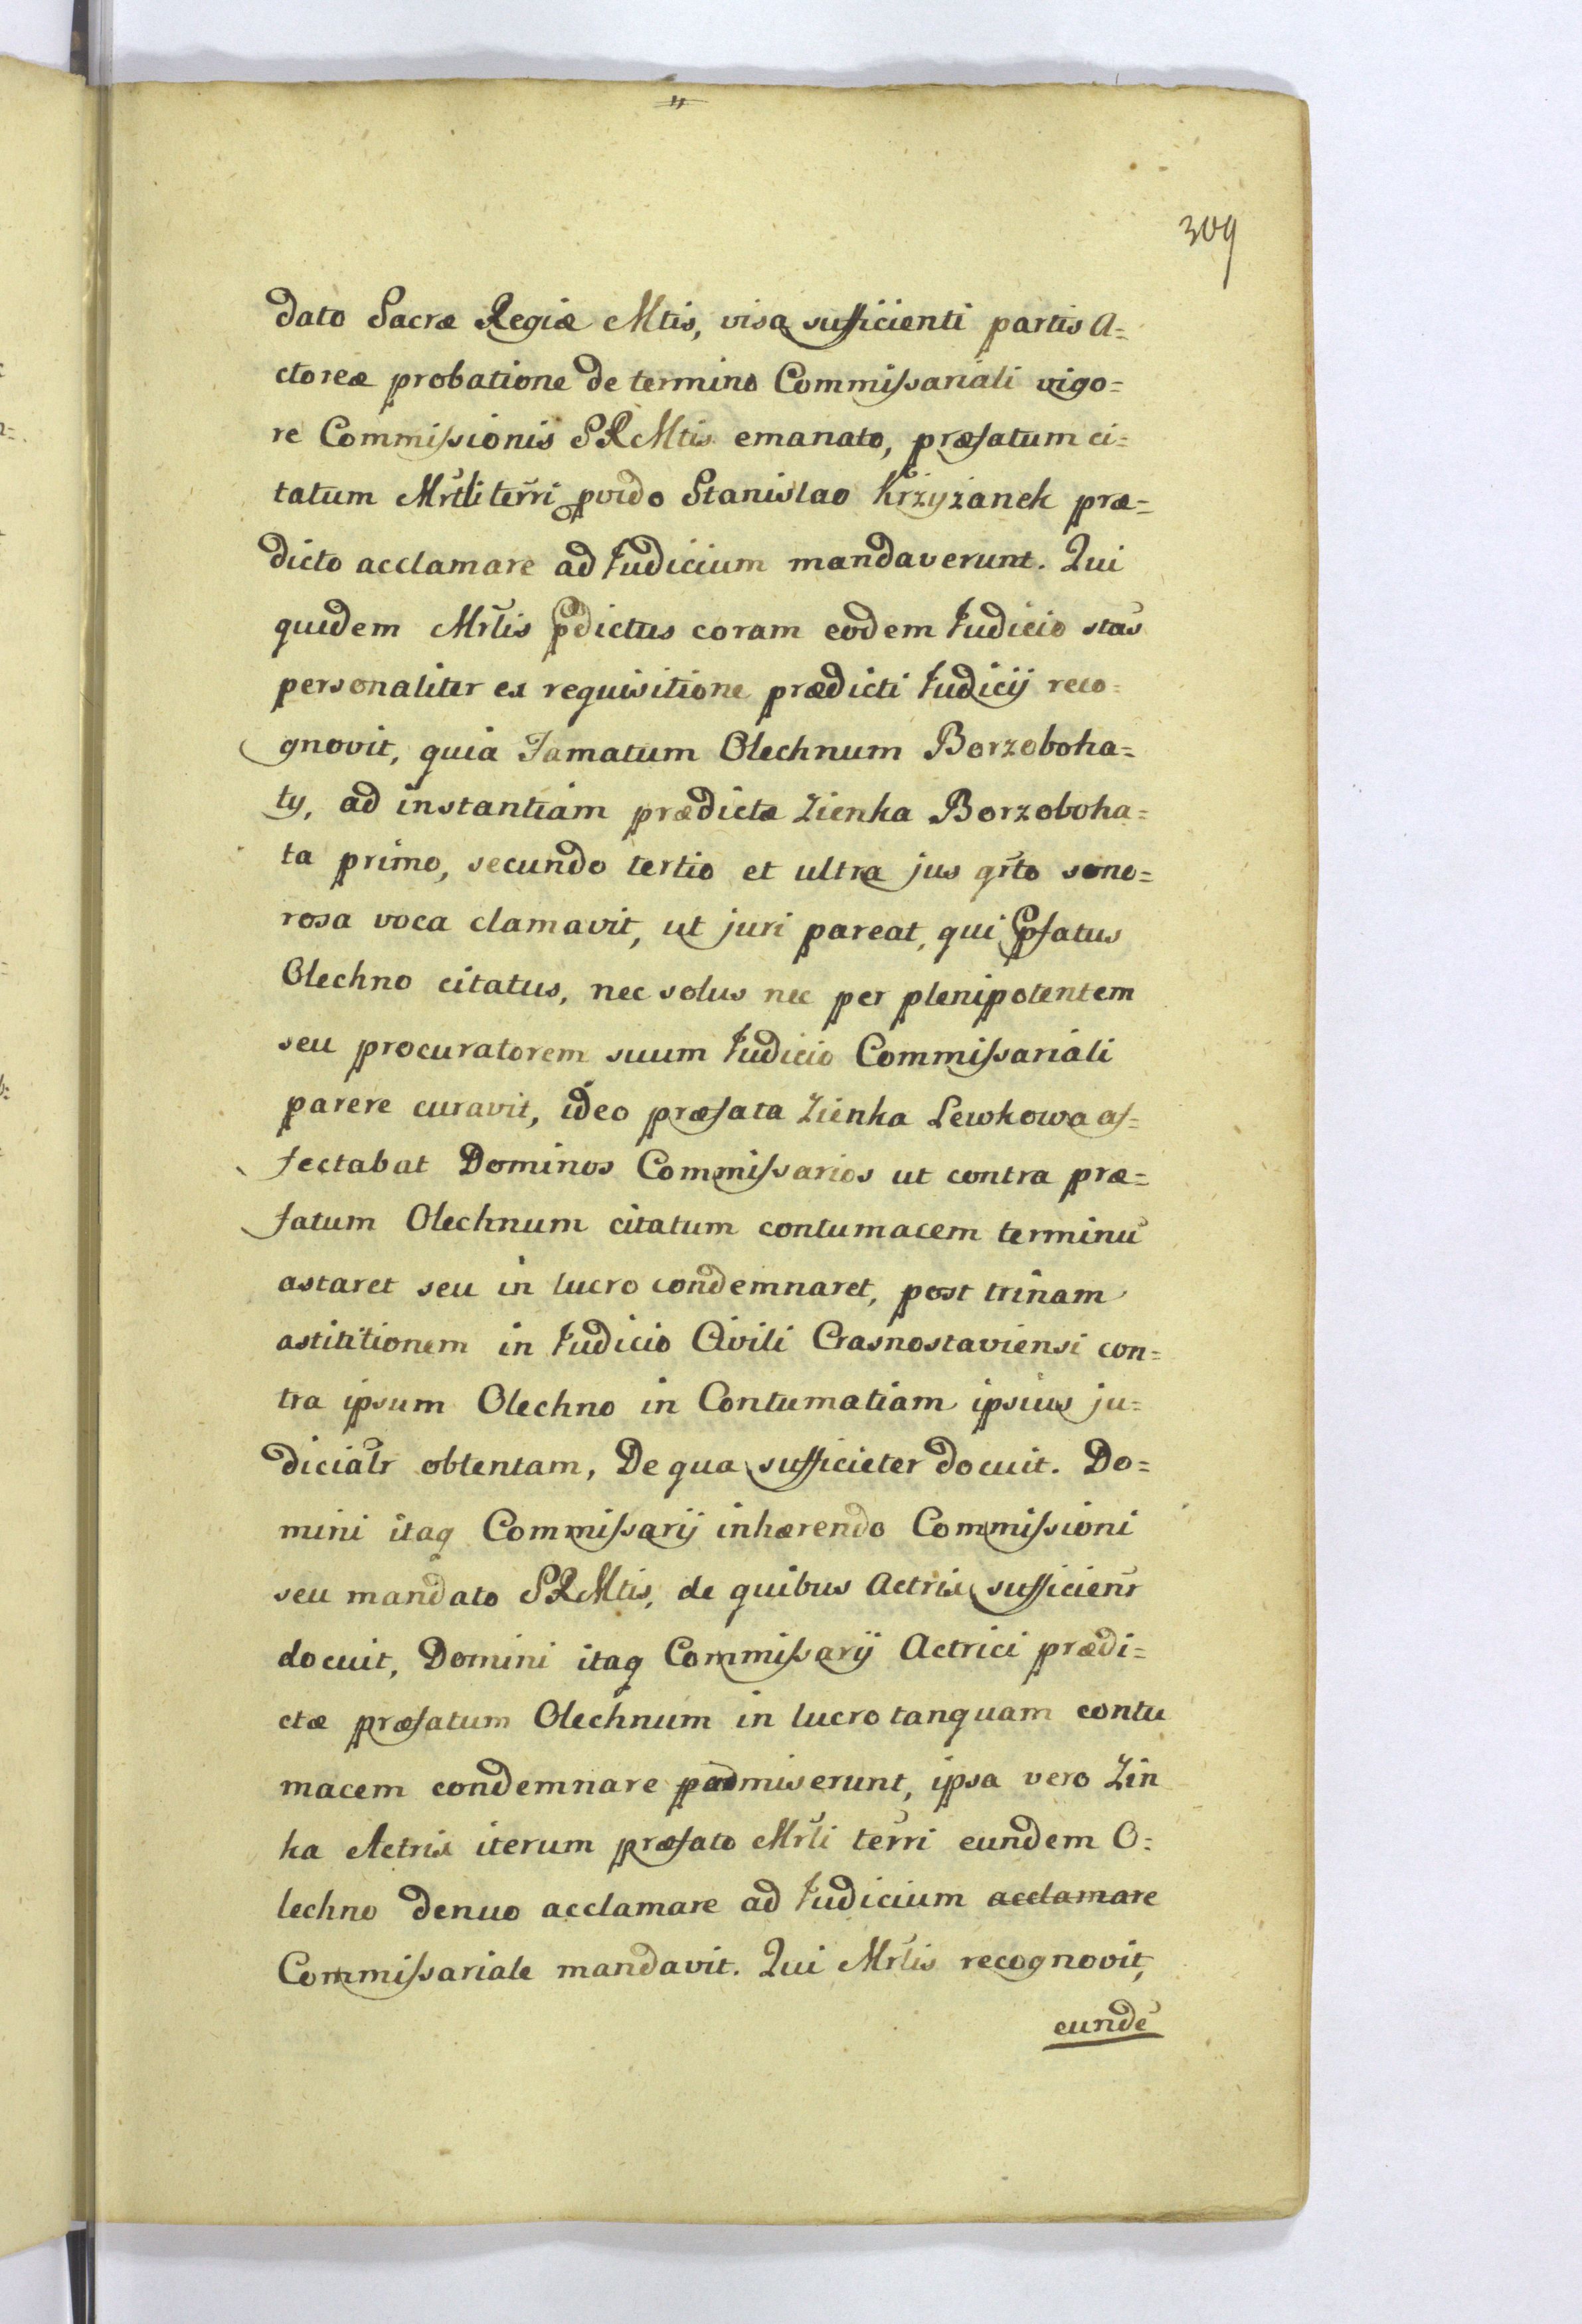 309
dato Sacræ Regiæ Mtis, visa sufficienti partis A=
ctoreæ probatione de termino Commiſsariali vigo=
re Commiſsionis SRMtis emanato, præfatum ci=
tatum Mr̃tli ter̃ri pvido Stanislao Krzyżanek præ=
dicto acclamare ad Judicium mandaverunt. Qui
quidem Mrl̃is pdictus coram eodem Judicio stãs
personaliter ex requisitione prædicti Judicij reco=
gnovit, quia Famatum Olechnum Borzoboha=
ty, ad instantiam prædictæ Zienka Borzoboha=
ta primo, secundo tertio et ultra jus qr̃to sono=
rosa voca clamavit, ut juri pareat, qui pfatus
Olechno citatus, nec solus nec per plenipotentem
seu procuratorem suum Judicio Commiſsariali
parere curavit, ideo præfata Zienka Lewkowa af=
fectabat Dominos Commiſsarios ut contra præ=
fatum Olechnum citatum contumacem terminũ
astaret seu in lucro condemnaret, post trinam
astititionem in Judicio Civili Crasnostaviensi con=
tra ipsum Olechno in Contumatiam ipsius ju=
dicial̃r obtentam, De qua sufficieter docuit. Do=
mini itaq Commiſsarij inhærendo Commiſsioni
seu mandato SRMtis, de quibus Actrix sufficien̂r
docuit, Domini itaq Commiſsarij Actrici prædi=
ctæ præfatum Olechnum in lucro tanquam contu
macem condemnare admiserunt, ipsa vero Zin
ka Actrix iterum præfato Mrl̃i ter̃ri eundem O=
lechno denuo acclamare ad Judicium acclamare
Commiſsariale mandavit. Qui Mrl̃is recognovit,
eundẽ